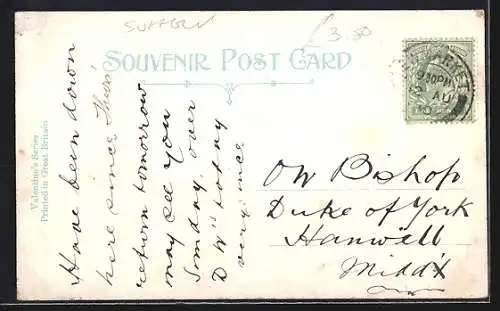 SUFFOLK
£3.50
SOUVENIR POST CARD
Valentine's Series
Printed in Great Britain
Have been down
here since Thurs
return tomorrow
may see you
Sunday, over
D W's today
very nice
9 30 PM
AU
O W Bishop
Duke of York
Hanwell
Midd'x